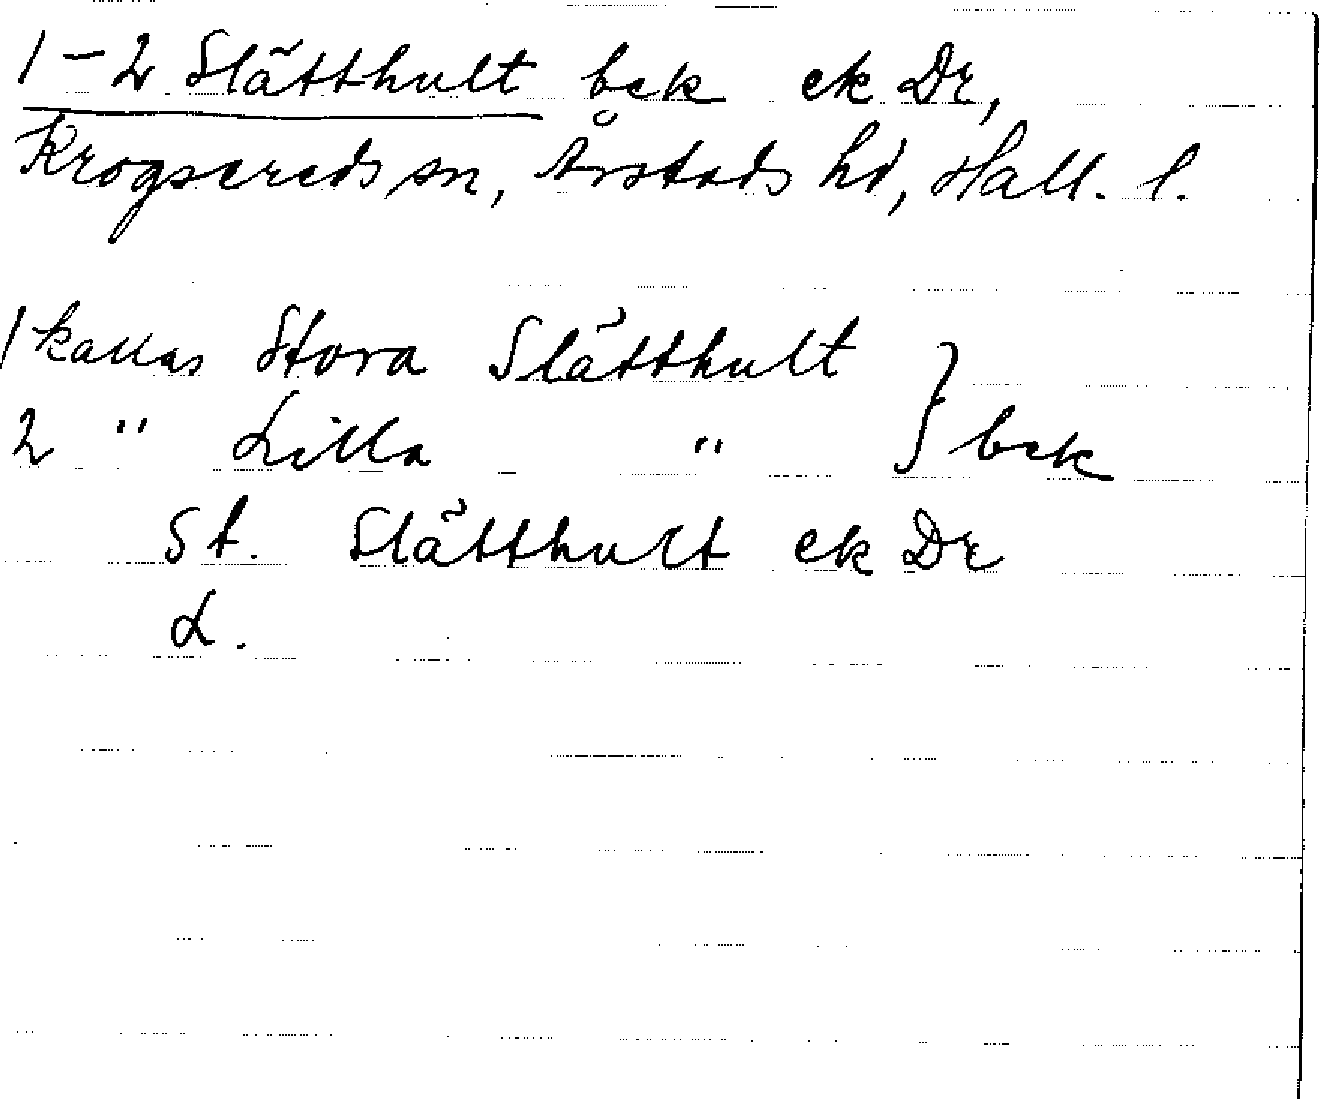 1-2 Slätthult bek ek Dr,
Krogsereds sn, Årstads hd, Hall. l.
1 kallas Stora Slätthult
2 " Lilla " } bek
St. Slätthult ek Dr
L.